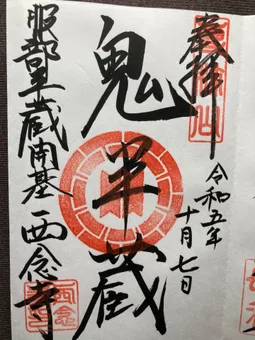 奉拝
令和五年
十月七日
鬼半蔵
服部半蔵開基 西念寺
西念寺